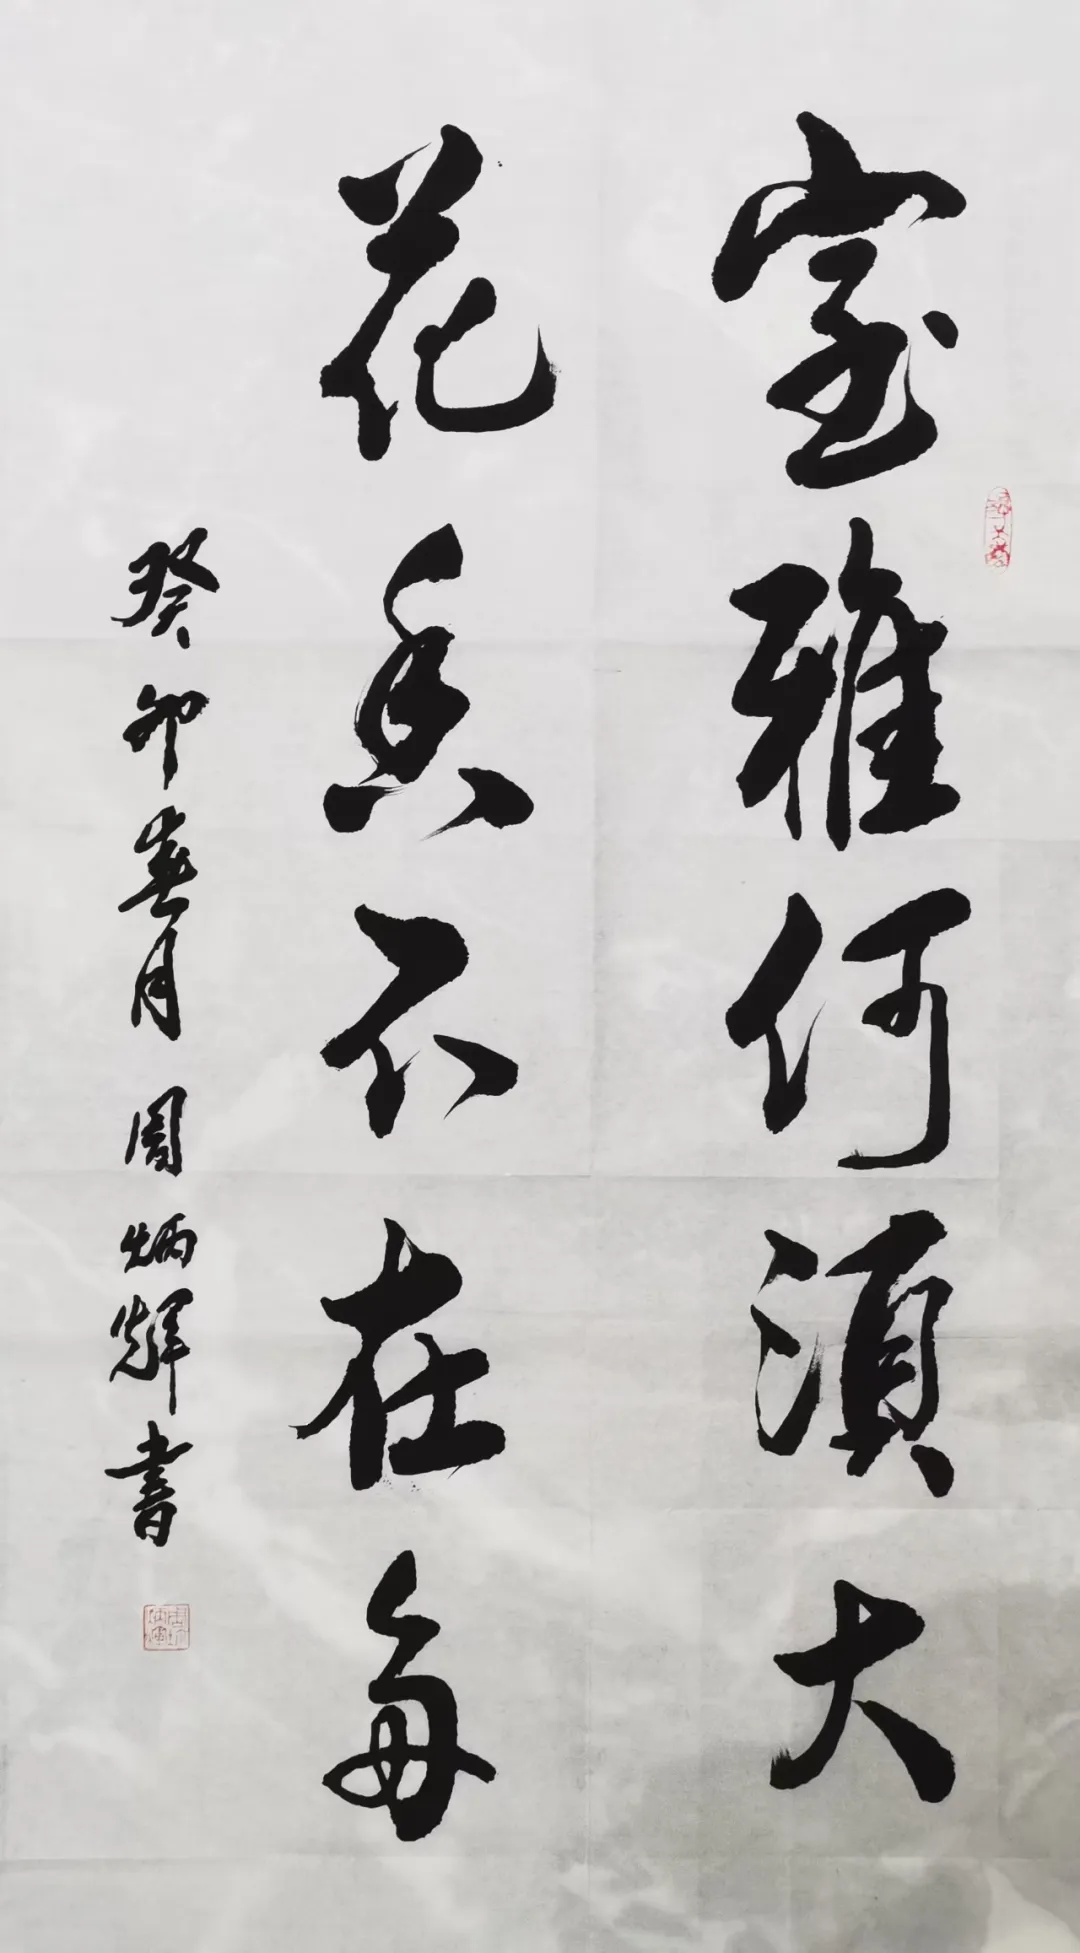 室雅何須大
花香不在多
癸卯春月周炳輝書